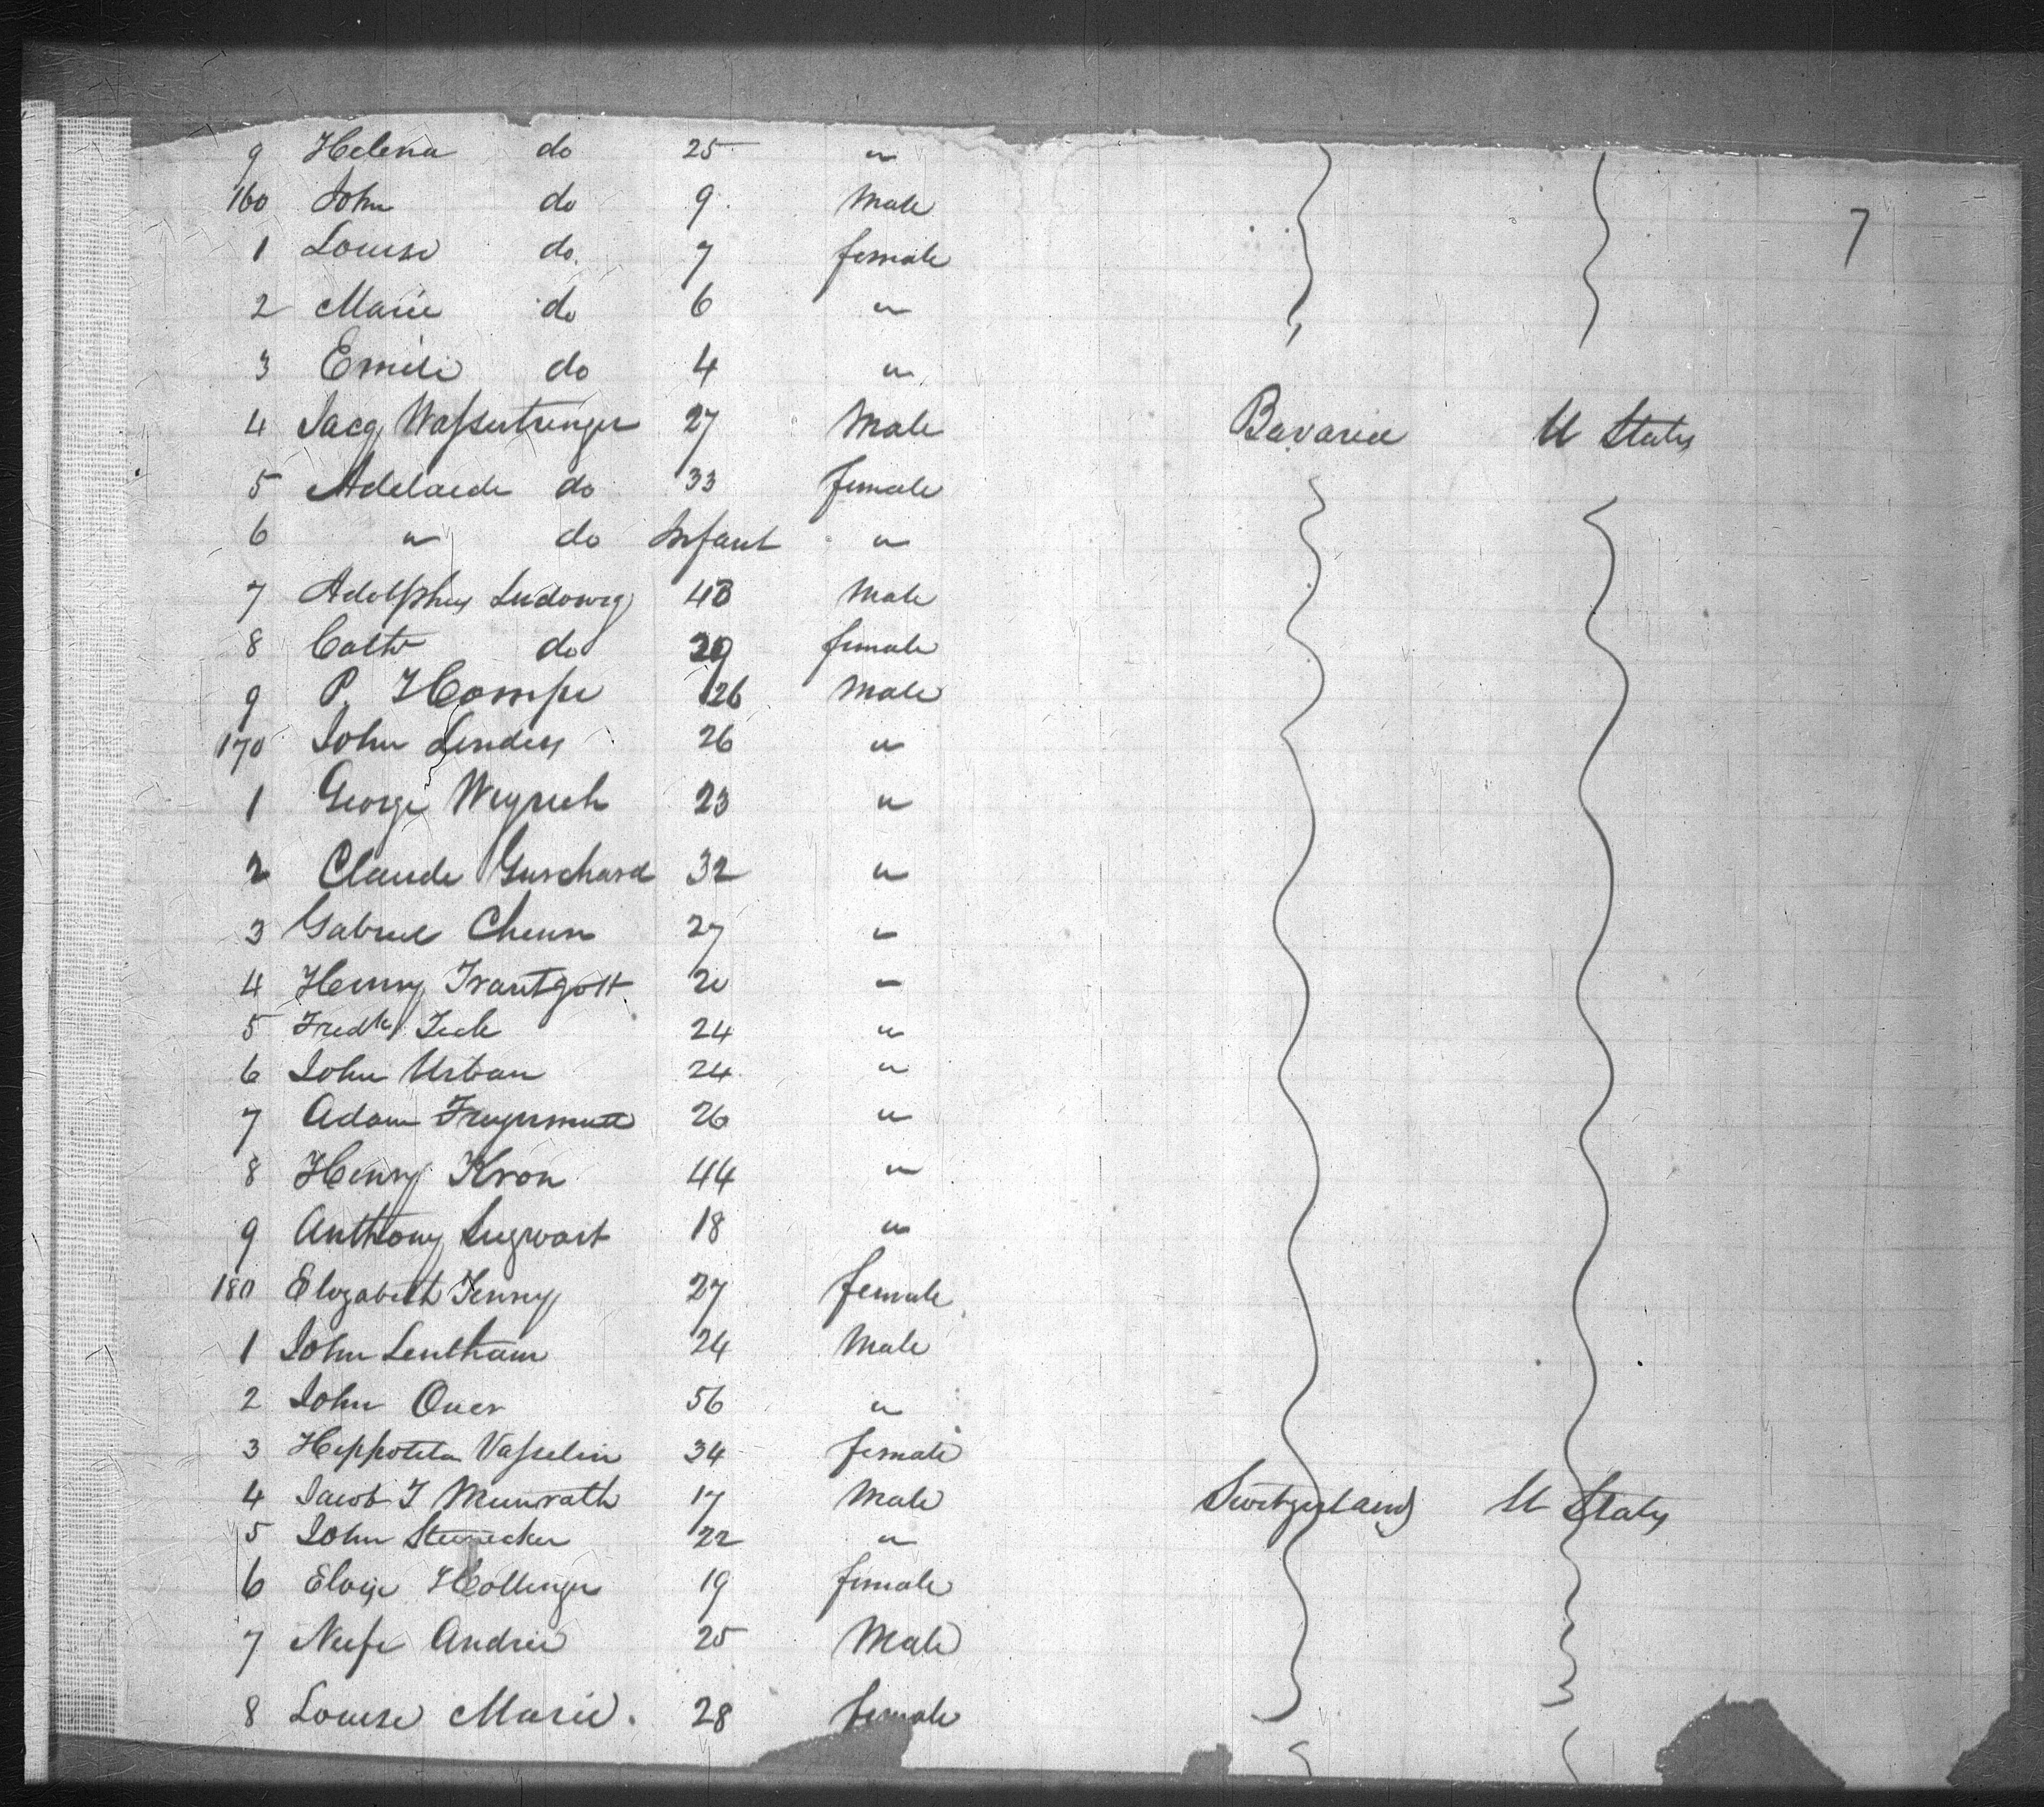 9 Helena do 25 "
160 John do 9 Male
7
1 Louise do. 7 female
2 Marie do 6 "
3 Emile do 4 "
4 Jacq Wassertrenger 27 Male Bavaria U States
5 Adelaide do 33 female
6 " do Infant "
7 Adolphus Ludowig 43 Male
8 Cath do 29 female
9 P. Hompe 26 Male
170 John Lenders 26 "
1 George Weyrich 23 "
2 Claude Guichard 32 "
3 Gabriel 27 "
4 Henry Trautgott 20 "
5 Fredk 24 "
6 John Urban 24 "
7 Adam 26 "
8 Henry Kron 44 "
9 Anthony 18 "
180 Elizabeth Jenny 27 female
1 John Lentham 24 Male
2 John Ouer 56 "
3 Vasselin 34 female
4 Jacob J Munrath 17 Male Switzerland U States
5 John Steinecker 22 "
6 Eloise Hollinger 19 female
7 Andrie 25 Male
8 Louise Marie. 28 female